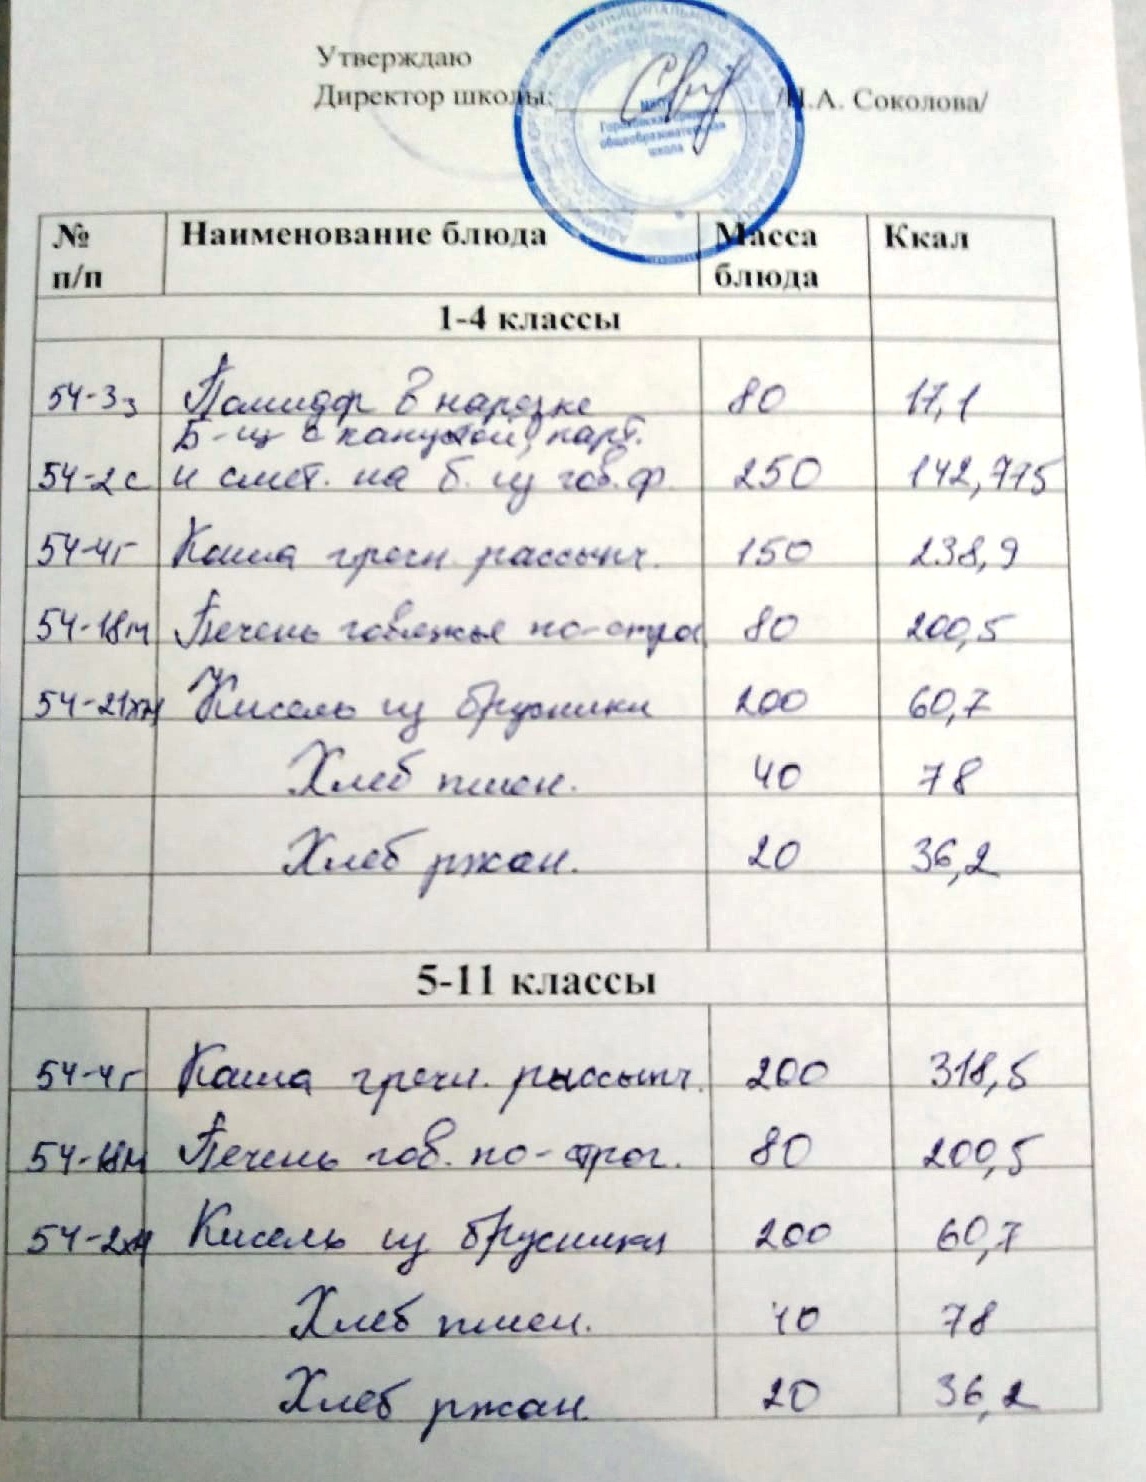 Утверждаю
Директор школы: /Н.А. Соколова/
общеобразовательная
школа
№ п/п Наименование блюда Масса блюда Ккал
1-4 классы
54-3з Помидор в нарезке 80 17,1
Б-щ с капустой, карт.
54-2с и смет. на б. из гов. ф. 250 142,775
54-4г Каша гречн. рассыпч. 150 238,9
54-18м Печень говяжья по-строг 80 200,5
54-21хн Кисель из брусники 200 60,7
Хлеб пшен. 40 78
Хлеб ржан. 20 36,2
5-11 классы
54-4г Каша гречн. рассыпч. 200 318,5
54-18м Печень гов. по-строг. 80 200,5
54-2хн Кисель из брусники 200 60,7
Хлеб пшен. 40 78
Хлеб ржан 20 36,2